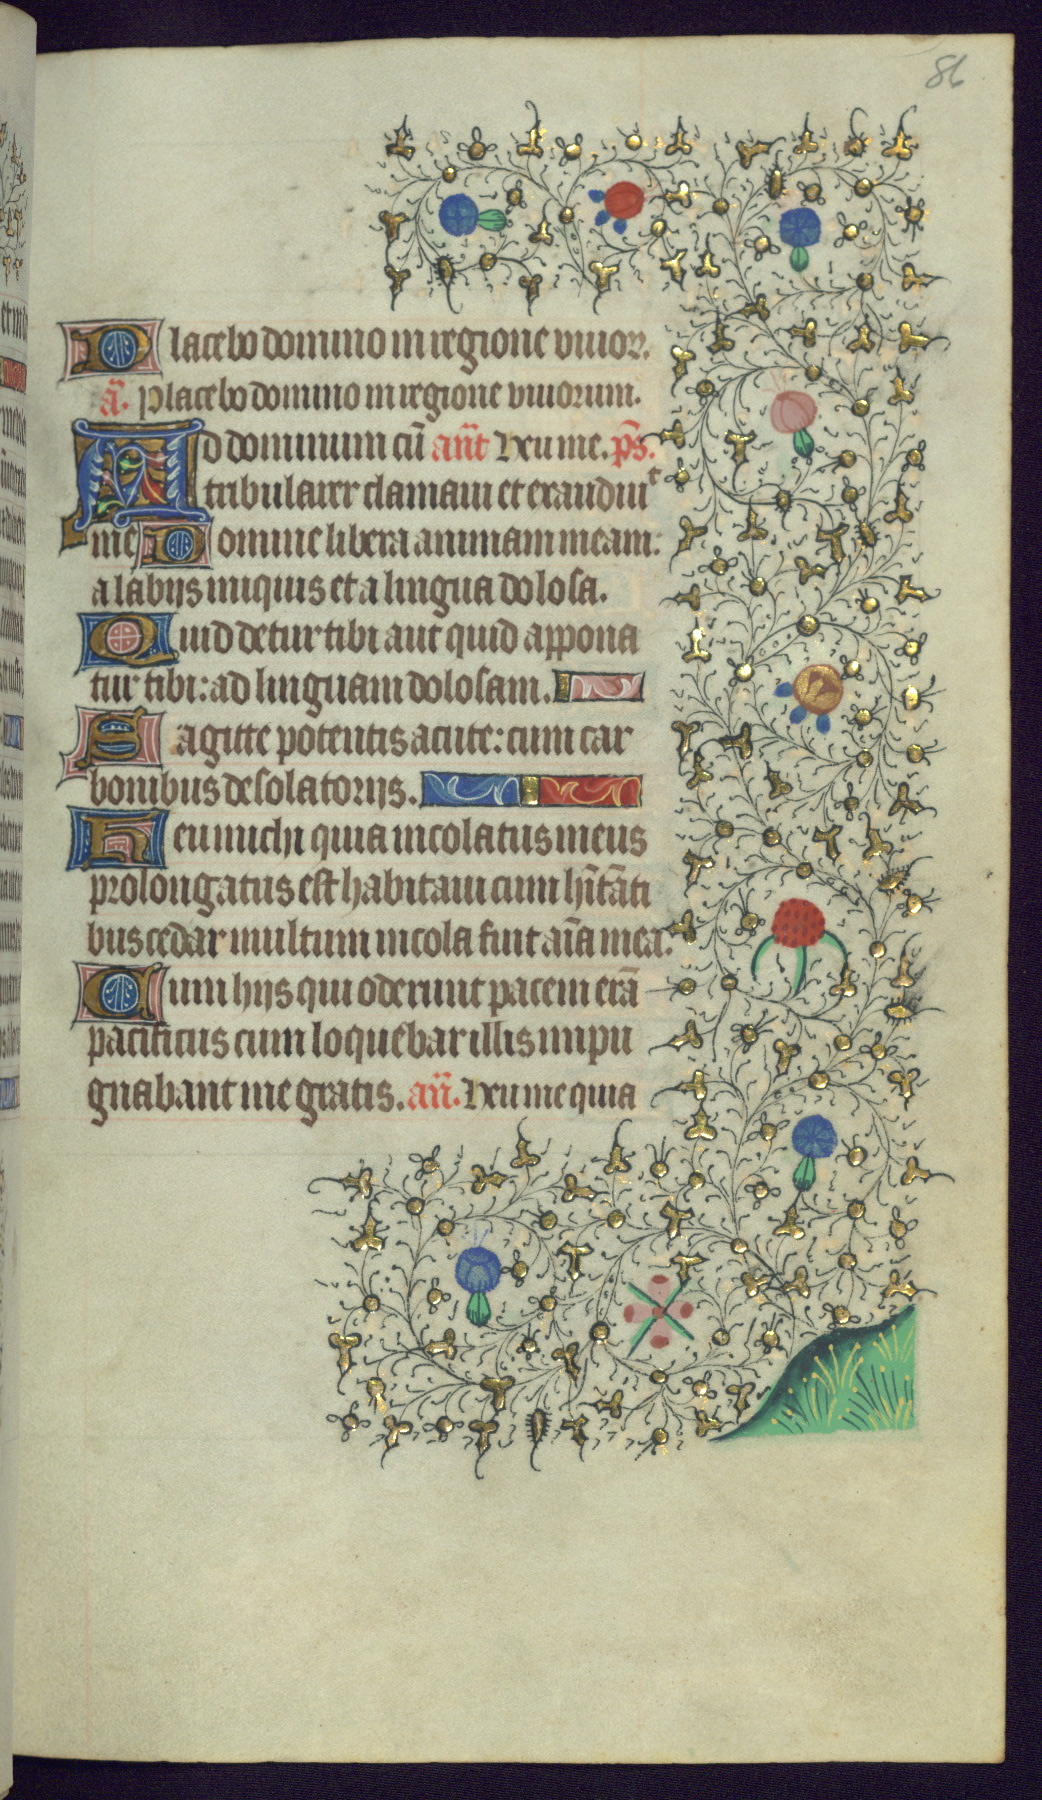 86
Placebo domino in regione viuor.
añ. Placebo domino in regione viuorum.
Ad dominum cũ añt Hxu me. p̃s.
tribularer clamaui et exaudiuit
me Domine libera animam meam:
a labijs iniquis et a lingua dolosa.
Quid detur tibi aut quid appona
tur tibi: ad linguam dolosam.
Sagitte potentis acute: cum car
bonibus desolatorijs.
Heu michi quia incolatus meus
prolongatus est habitaui cum hĩtãti
bus cedar multum incola fuit aĩa mea.
Cum hijs qui oderunt pacem erã
pacificus cum loquebar illis inpu
gnabant me gratis. añ. Hxu me quia